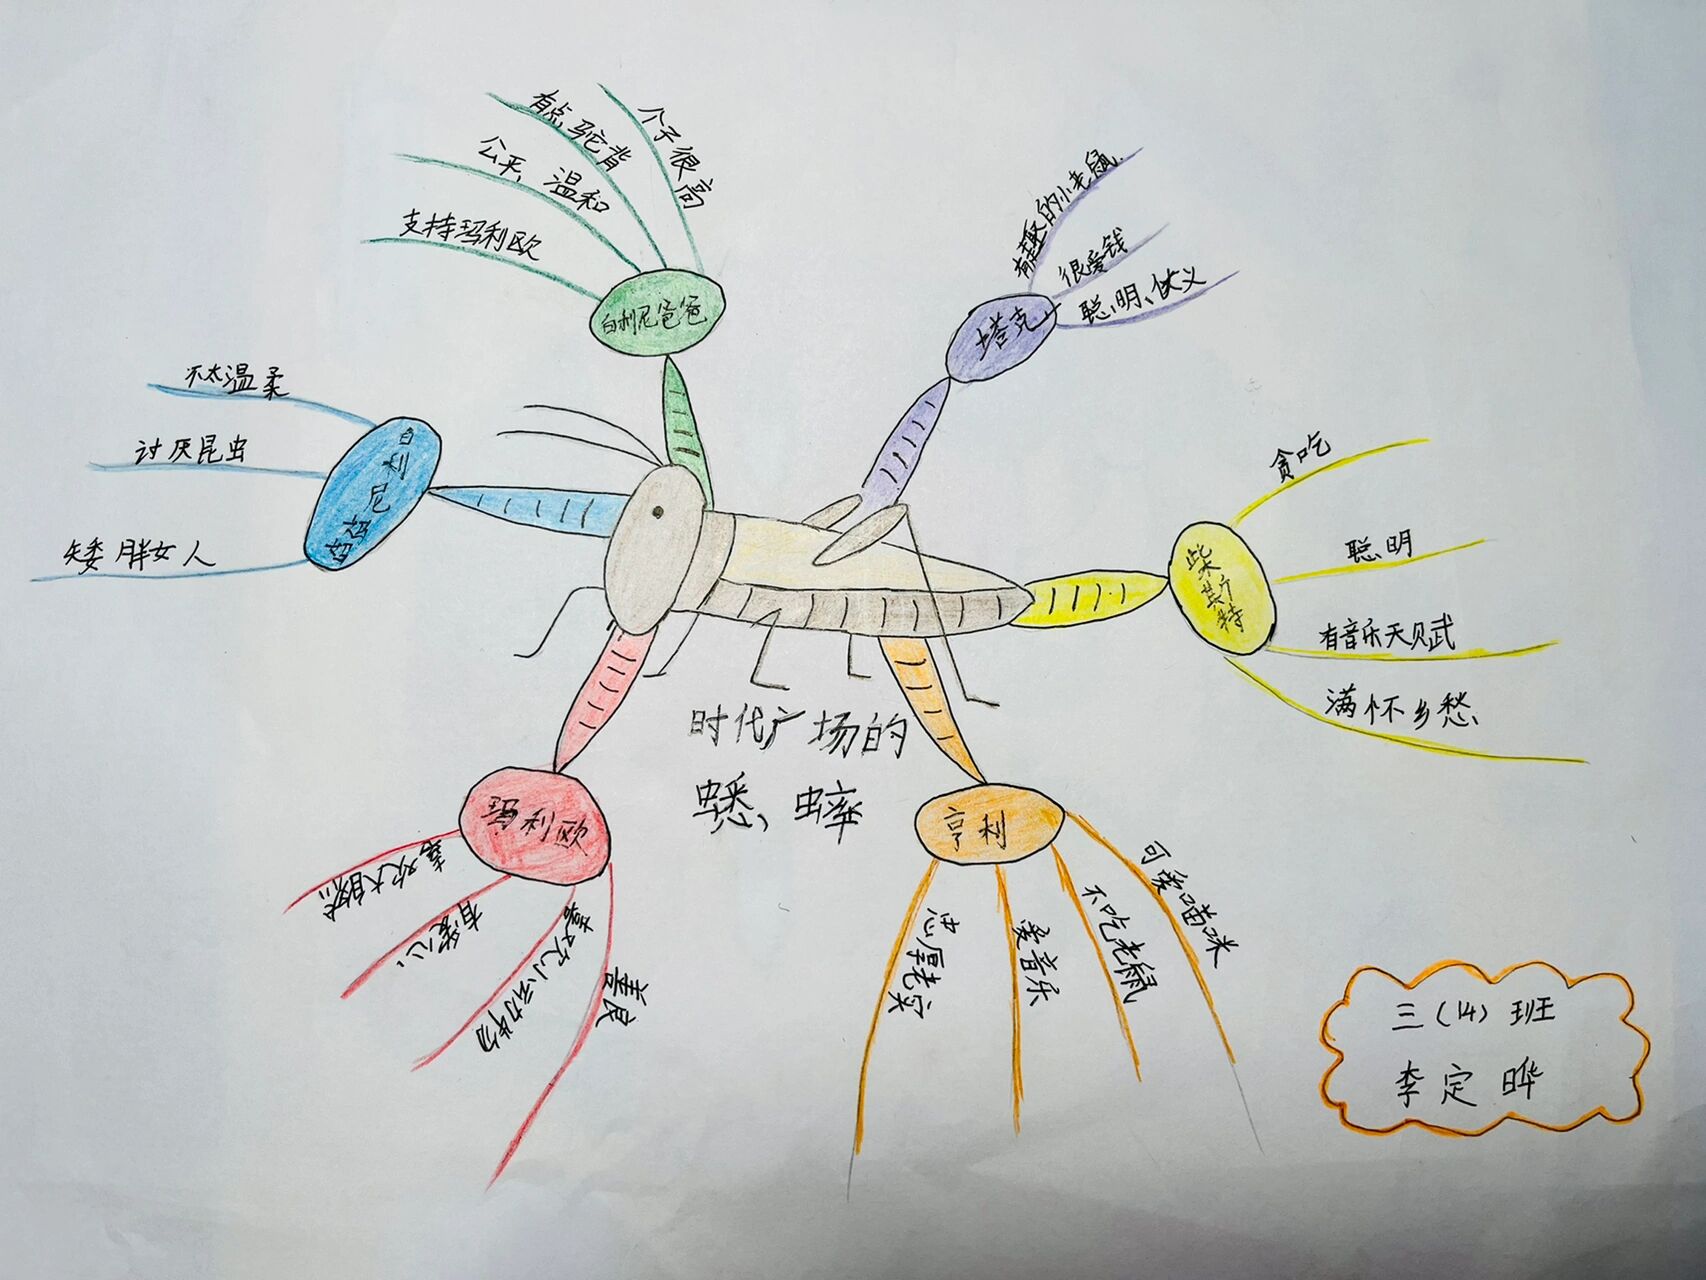 个子很高
有点驼背
公平，温和
支持玛利欧
白利尼爸爸
有趣的小老鼠
很爱钱
聪明、仗义
塔克
不太温柔
讨厌昆虫
矮胖女人
白利尼妈妈
贪吃
聪明
有音乐天赋
满怀乡愁
柴斯特
时代广场的
蟋蟀
玛利欧
喜欢大自然
有爱心
喜欢小动物
善良
亨利
忠厚老实
爱音乐
不吃老鼠
可爱喵咪
三（14）班
李定晔